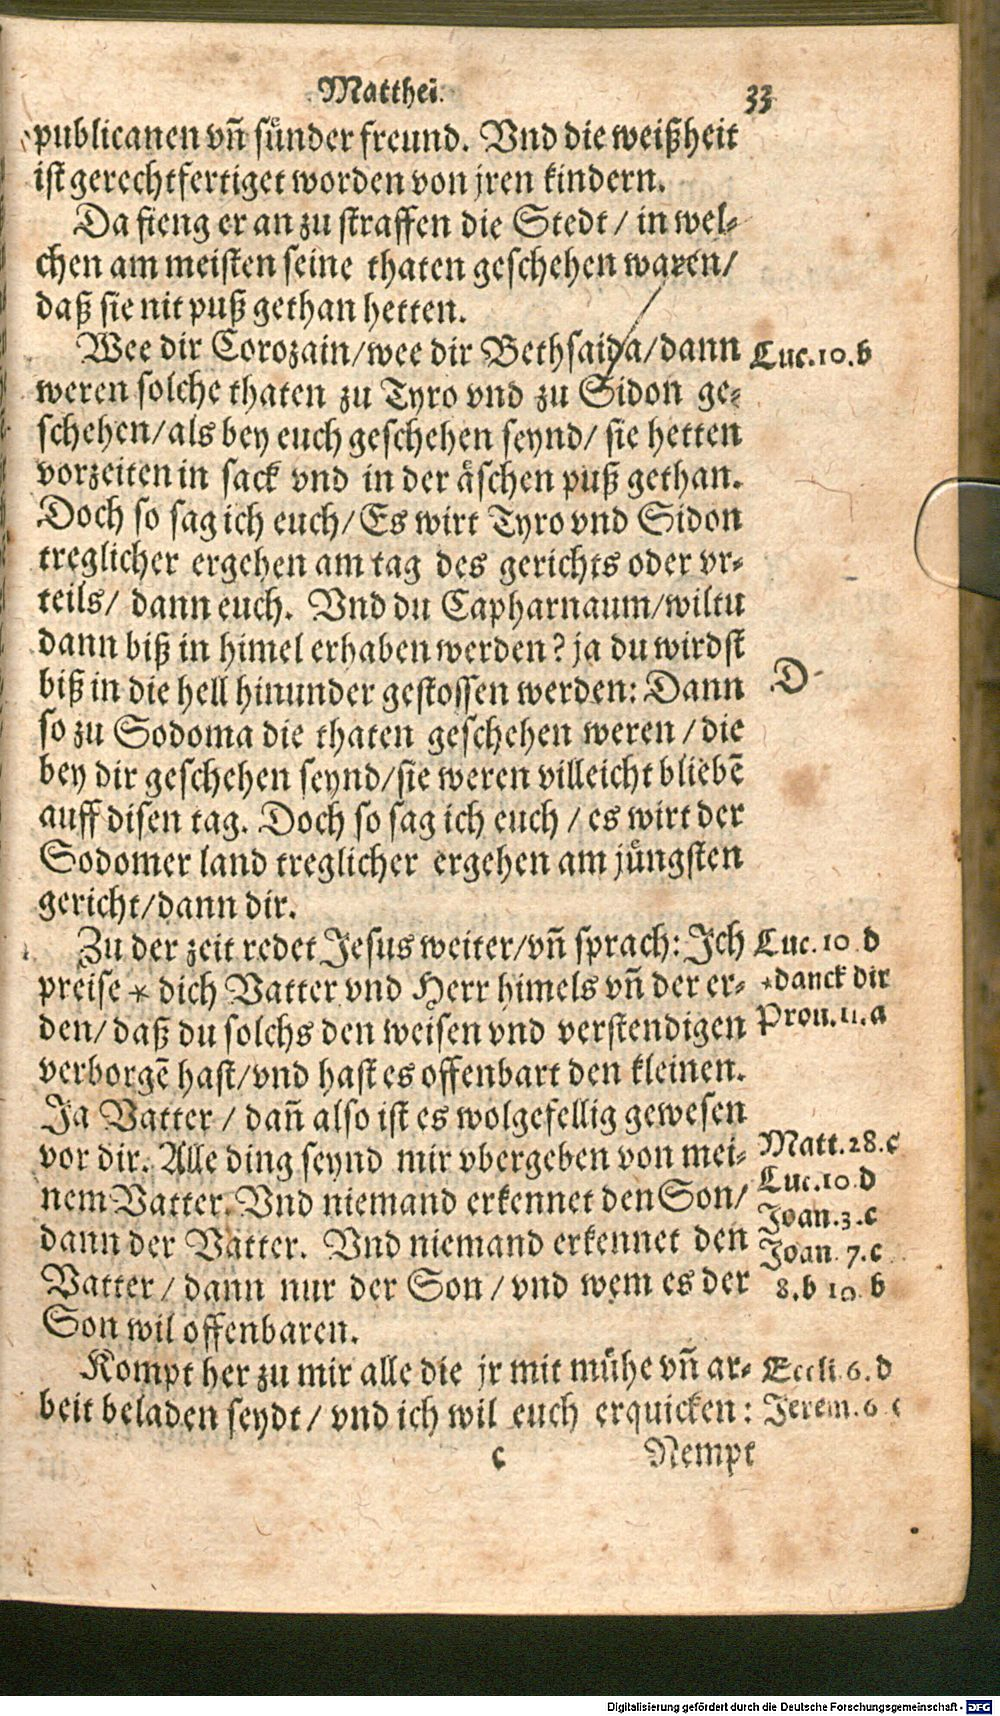 Matthei. 33
publicanen vnd̄ sünder freund. Vnd die weißheit
ist gerechtfertiget worden von jren kindern.
Da fieng er an zu straffen die Stedt / in wel-
chen am meisten seine thaten geschehen waren/
daß sie nit puß gethan hetten.
Wee dir Corozain/wee dir Bethsaida/dann Luc.10.b
weren solche thaten zu Tyro vnd zu Sidon ge-
schehen/als bey euch geschehen seynd/ sie hetten
vorzeiten in sack vnd in der äschen puß gethan.
Doch so sag ich euch/Es wirt Tyro vnd Sidon
treglicher ergehen am tag des gerichts oder vr-
teils/ dann euch. Vnd du Capharnaum/wiltu
dann biß in himel erhaben werden? ja du wirdst
biß in die hell hinunder gestossen werden: Dann D
so zu Sodoma die thaten geschehen weren / die
bey dir geschehen seynd/sie weren villeicht bliebē
auff disen tag. Doch so sag ich euch / es wirt der
Sodomer land treglicher ergehen am jüngsten
gericht/dann dir.
Zu der zeit redet Jesus weiter/vñ sprach: Ich Luc. 10 d
preise * dich Vatter vnd Herr himels vñ der er- *danck dir
den/ daß du solchs den weisen vnd verstendigen Prou.11.a
verborgē hast/vnd hast es offenbart den kleinen.
Ja Vatter / dañ also ist es wolgefellig gewesen
vor dir. Alle ding seynd mir vbergeben von mei- Matt.28.c
nem Vatter. Vnd niemand erkennet den Son/ Luc.10.d
dann der Vatter. Vnd niemand erkennet den Joan.3.c
Joan.7.c
Vatter / dann nur der Son / vnd wem es der 8.b 10.b
Son wil offenbaren.
Kompt her zu mir alle die jr mit mühe vñ ar- Eccli.6.d
beit beladen seydt / vnd ich wil euch erquicken: Jerem.6 c
c Nempt
Digitalisierung gefördert durch die Deutsche Forschungsgemeinschaft - DFG